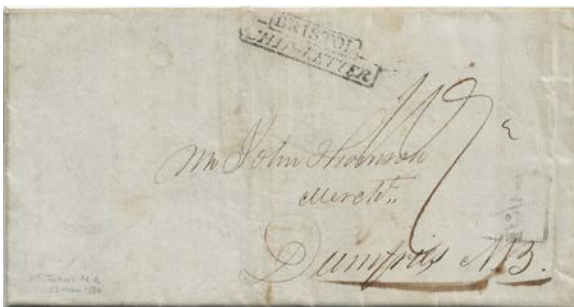 BRISTOL
SHIP-LETTER
Mr John Thomson
Mercht.
Dumfries N.B.
ST. JOHNS N.B.